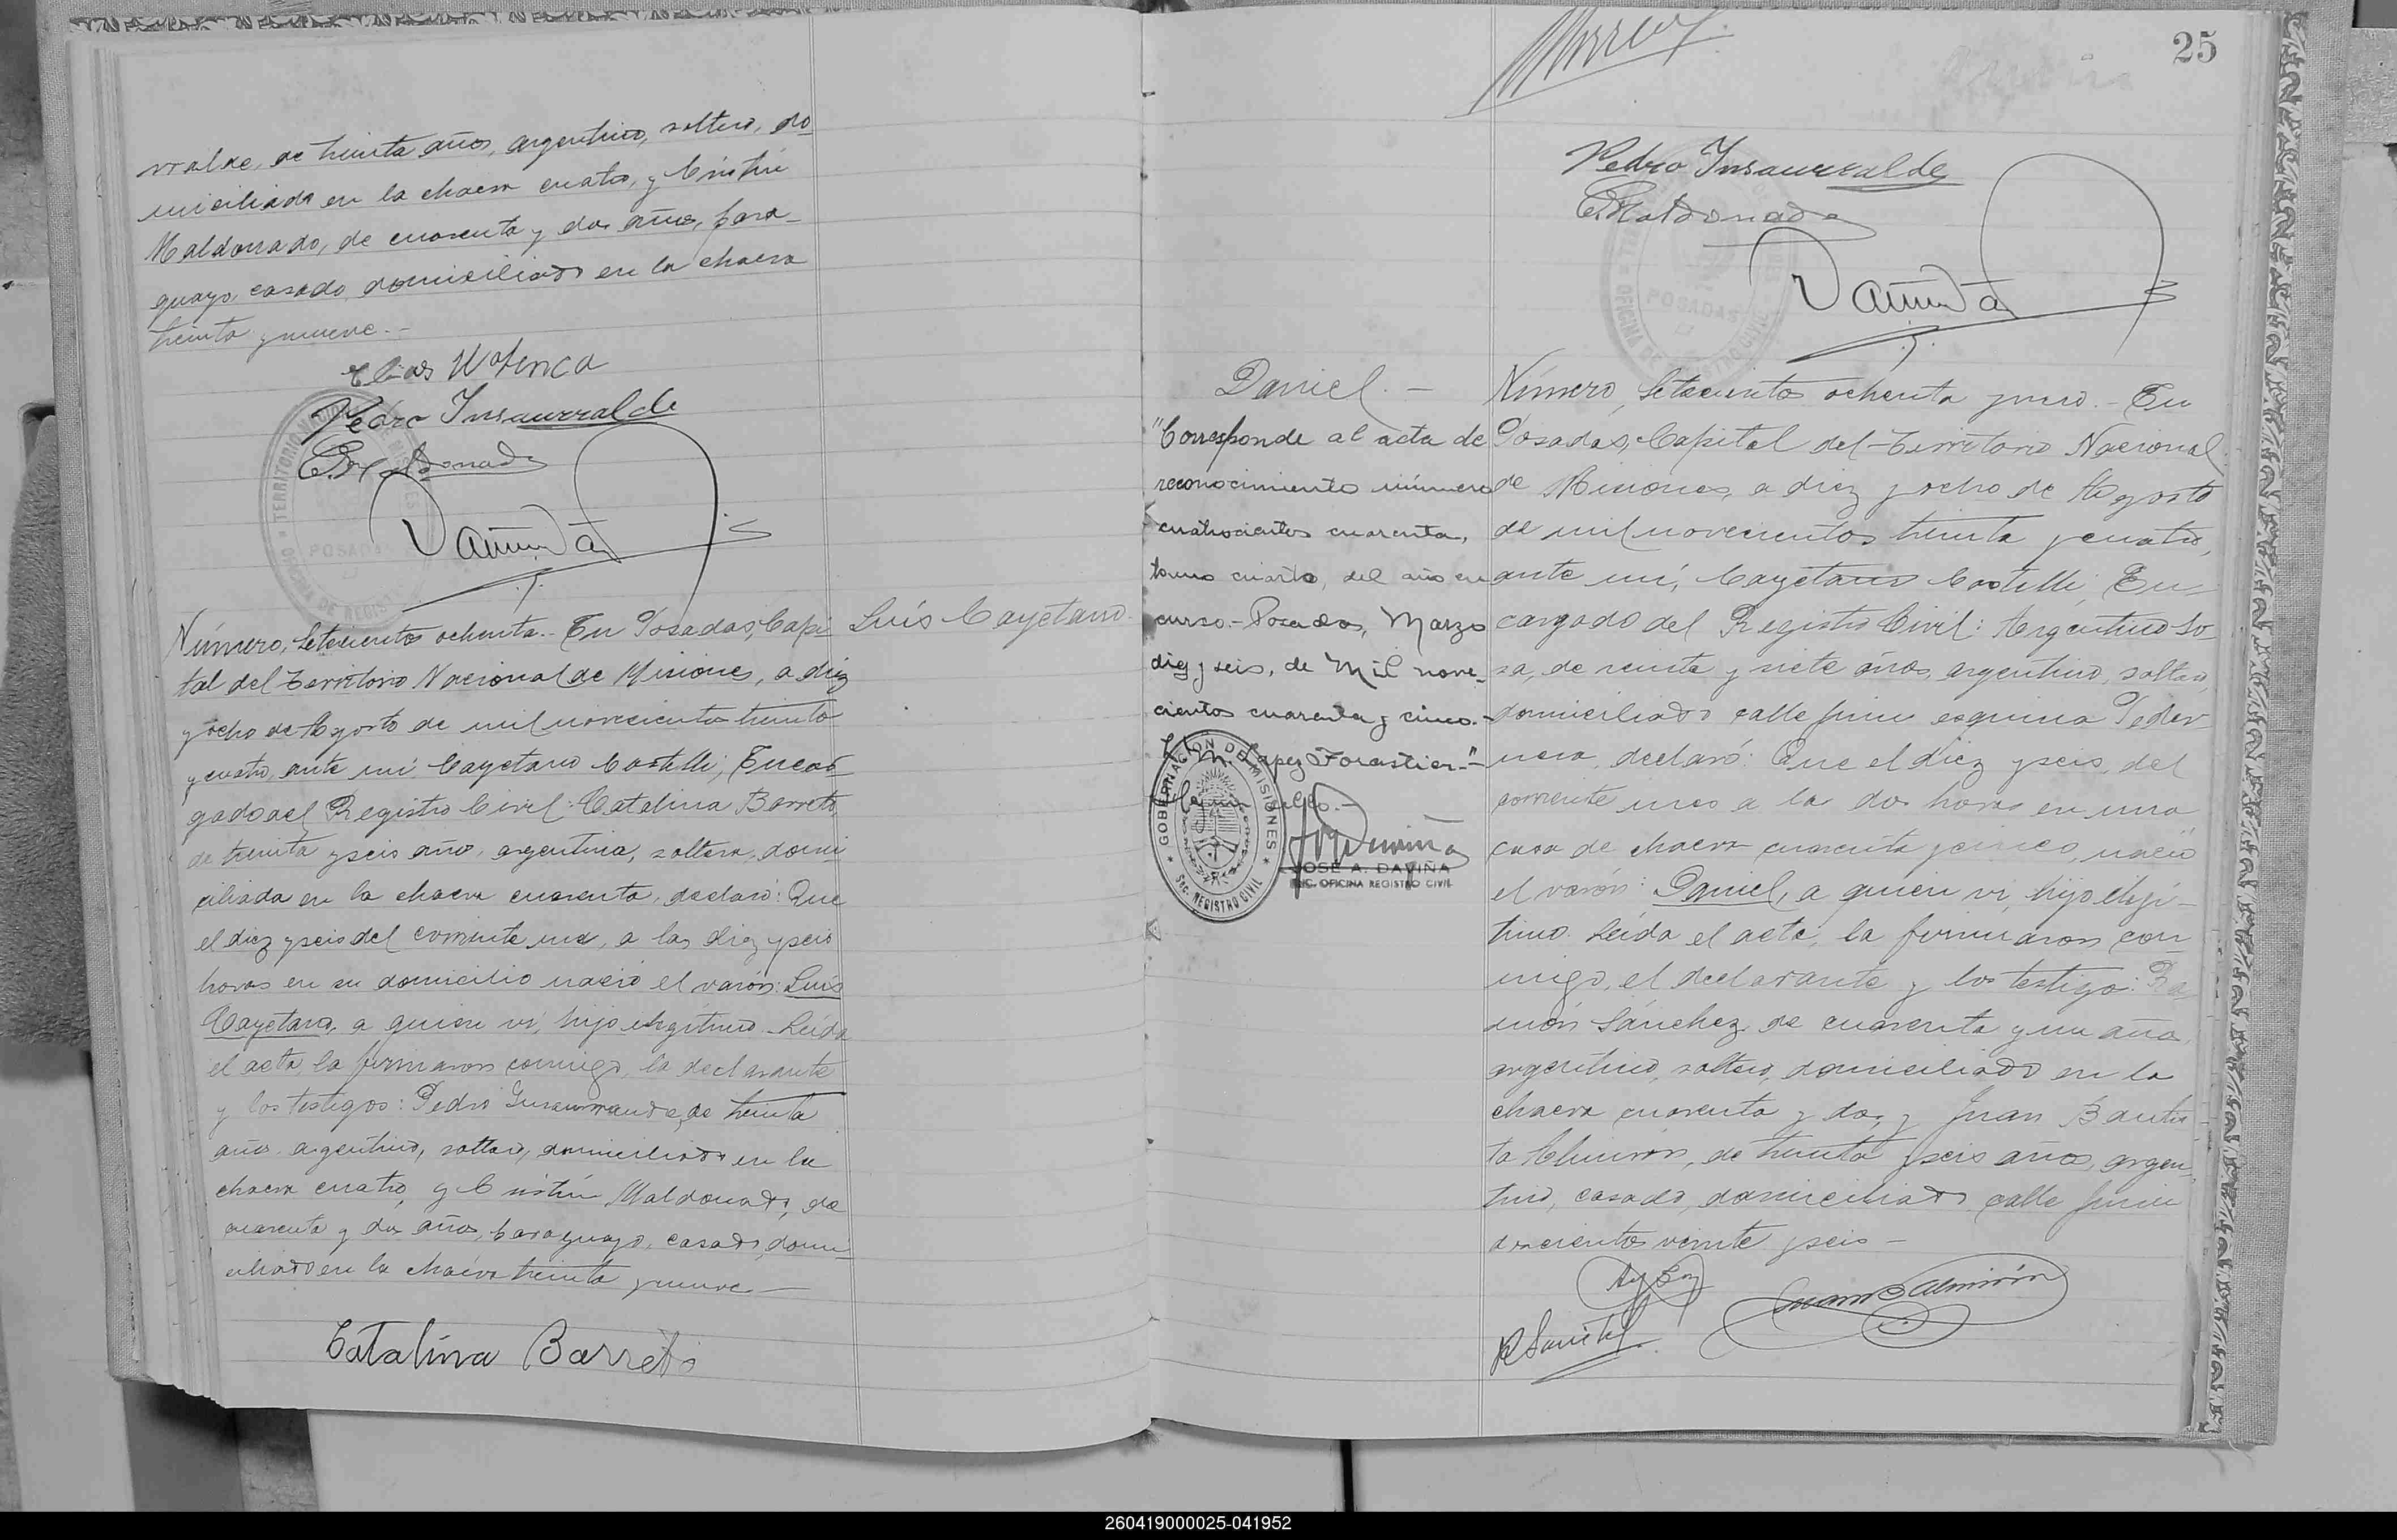 rralde, de treinta años, argentino, soltero, do
miciliado en la chacra cuatro, y Cristín
Maldonado, de cuarenta y dos años, para-
guayo, casado domiciliado en la chacra
treinta y nueve.-
Elias
Pedro Insaurralde
C. Maldonado
TERRITORIO NACIONAL DE MISIONES
POSADAS
OFICINA DE REGISTRO
Luís Cayetano
Número, Setecientos ochenta.- En Posadas, Capi
tal del Territorio Nacional de Misiones, a diez
y ocho de Agosto de mil novecientos treinta
y cuatro, ante mí Cayetano Castelli, Encar
gado del Registro Civil: Catalina Barreto,
de treinta y seis año, argentina, soltera, domi
ciliada en la chacra cuarenta, declaró: Que
el diez y seis del corriente mes, a las diez y seis
horas en su domicilio nació el varón: Luis
Cayetano, a quien ví, hijo ilegítimo. Leída
el acta, la firmaron conmigo, la declarante
y los testigos: Pedro Insaurralde, de treinta
años, argentino, soltero, domiciliado en la
chacra cuatro, y Cristín Maldonado, de
cuarenta y dos años, paraguayo, casado, domi
ciliado en la chacra treinta y nueve.—
Catalina Barreto
25
Pedro Insaurralde
C. Maldonado
POSADAS
OFICINA DE REGISTRO CIVIL
Daniel.—
"Corresponde al acta de
reconocimiento número
cuatrocientos cuarenta,
tomo cuarto, del año en
curso.- Posadas, Marzo
diez y seis, de Mil nove-
cientos cuarenta y cinco.-
M. Lopez Forastier.-"
GOBERNACION DE MISIONES
Sec. REGISTRO CIVIL
JOSE A. DAVIÑA
OFICINA REGISTRO CIVIL
Número, Setecientos ochenta y uno.- En
Posadas, Capital del Territorio Nacional
de Misiones, a diez y ocho de Agosto
de mil novecientos treinta y cuatro,
ante mí, Cayetano Castelli, En-
cargado del Registro Civil: Argentino So
sa, de veinte y siete años, argentino, soltero,
domiciliado calle Junin esquina Peder
nera, declaró: Que el diez y seis, del
corriente mes a las dos horas en una
casa de chacra cuarenta y cinco, nació
el varón: Daniel, a quien ví, hijo ilegí-
timo. Leída el acta, la firmaron con
migo, el declarante y los testigos: Ra
món Sánchez, de cuarenta y un años,
argentino, soltero, domiciliado en la
chacra cuarenta y dos, y Juan Bautis
ta Almirón, de treinta y seis años, argen
tino, casado, domiciliado calle Junin
doscientos veinte y seis.—
Juan B Almirón
R Sanchez
260419000025-041952